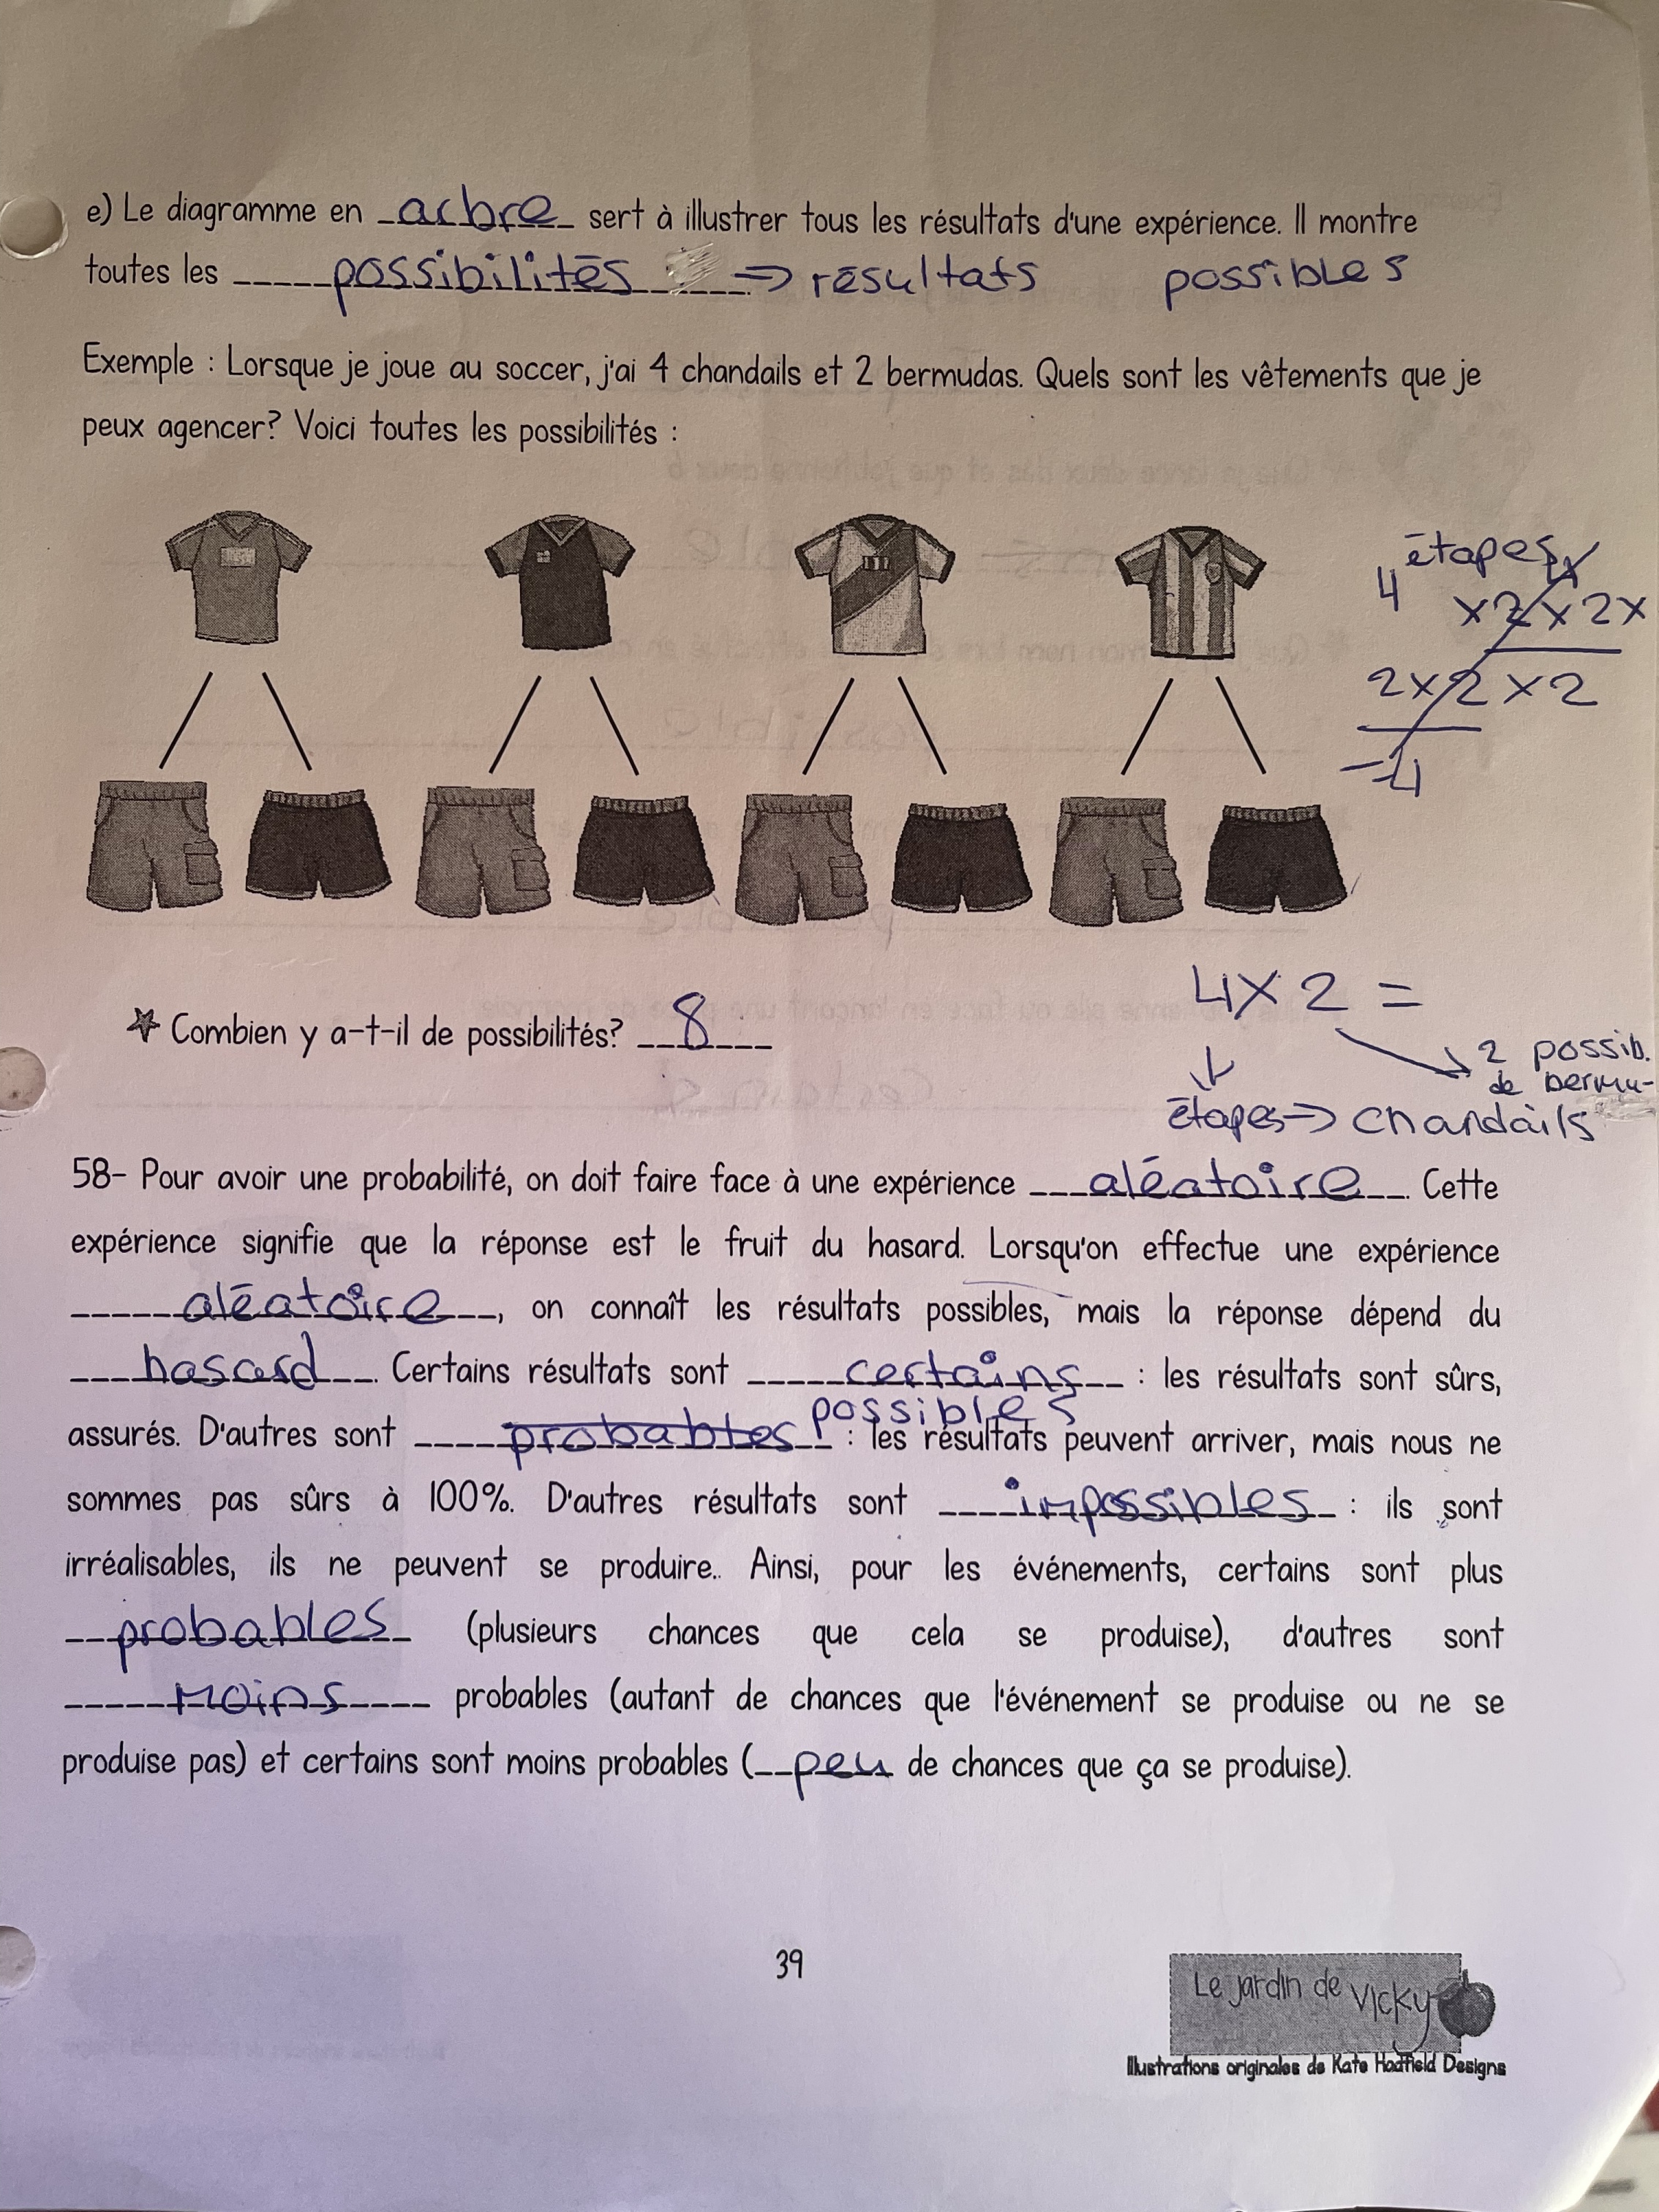 e) Le diagramme en arbre sert à illustrer tous les résultats d'une expérience. Il montre
toutes les possibilités => résultats possibles
Exemple : Lorsque je joue au soccer, j'ai 4 chandails et 2 bermudas. Quels sont les vêtements que je
peux agencer? Voici toutes les possibilités :
4 étapes
x2x2x
2x2x2
4
4x2=
★ Combien y a-t-il de possibilités? 8
2 possib.
de bermu-
étapes → chandails
58- Pour avoir une probabilité, on doit faire face à une expérience aléatoire. Cette
expérience signifie que la réponse est le fruit du hasard. Lorsqu'on effectue une expérience
aléatoire, on connaît les résultats possibles, mais la réponse dépend du
hasard. Certains résultats sont certains : les résultats sont sûrs,
possibles
assurés. D'autres sont probables : les résultats peuvent arriver, mais nous ne
sommes pas sûrs à 100%. D'autres résultats sont impossibles : ils sont
irréalisables, ils ne peuvent se produire.. Ainsi, pour les événements, certains sont plus
probables (plusieurs chances que cela se produise), d'autres sont
moins probables (autant de chances que l'événement se produise ou ne se
produise pas) et certains sont moins probables (peu de chances que ça se produise).
39
Le jardin de Vicky
Illustrations originales de Kate Hadfield Designs